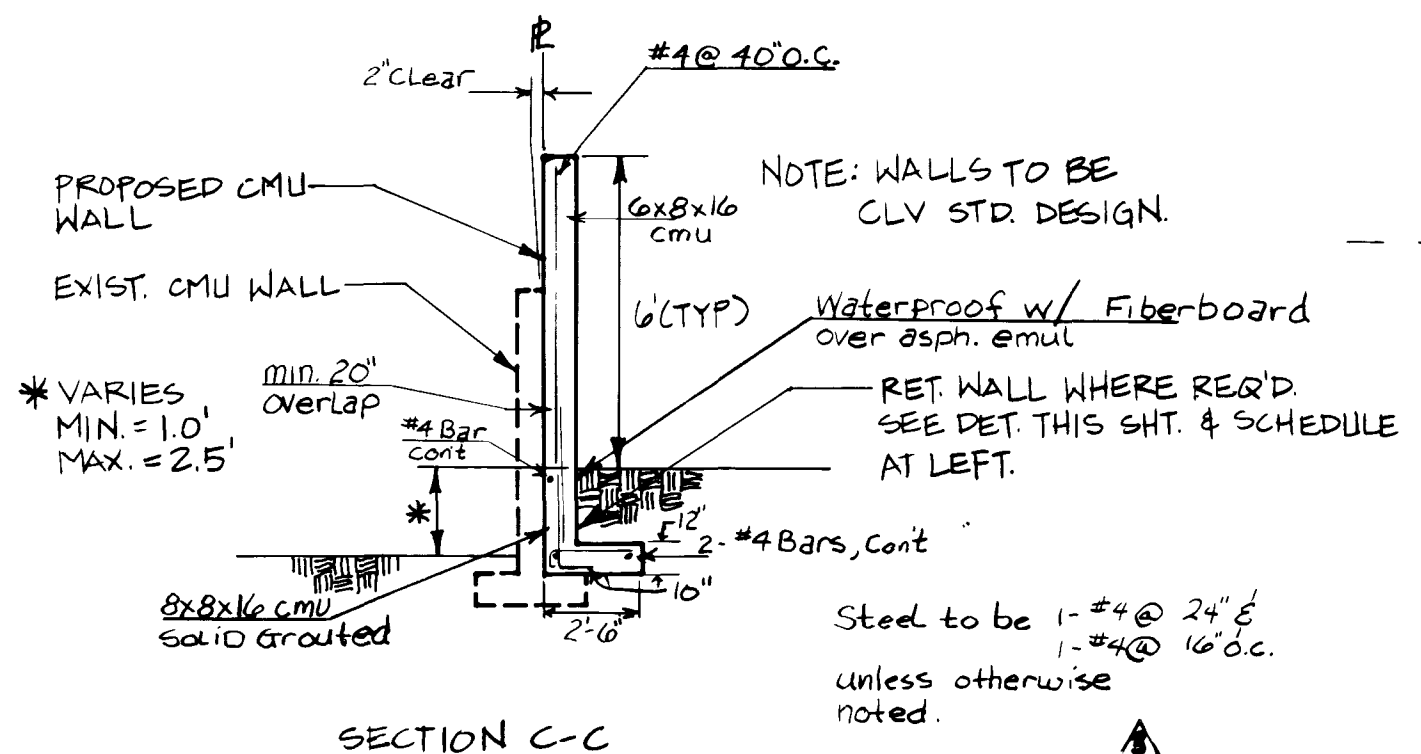 PL
2" Clear
#4 @ 40" O.C.
PROPOSED CMU
WALL
NOTE: WALLS TO BE
CLV STD. DESIGN.
6x8x16
cmu
EXIST. CMU WALL
6' (TYP)
Waterproof w/ Fiberboard
over asph. emul
* VARIES
MIN. = 1.0'
MAX. = 2.5'
min. 20"
overlap
RET. WALL WHERE REQ'D.
SEE DET. THIS SHT. & SCHEDULE
AT LEFT.
#4 Bar
con't
*
12"
2- #4 Bars, Con't
10"
8x8x16 cmu
Solid Grouted
2'-6"
Steel to be 1- #4 @ 24" &
1- #4 @ 16" o.c.
unless otherwise
noted.
SECTION C-C